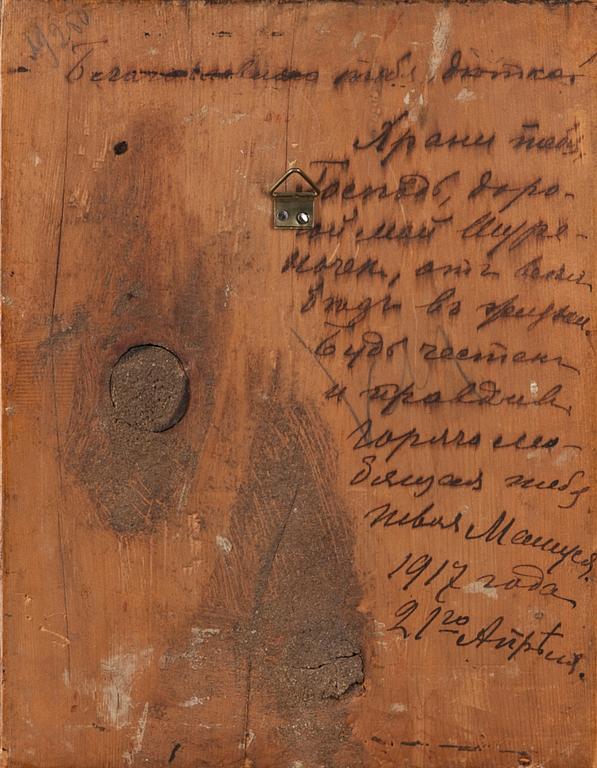 № 200
Благословляю тебя, дѣтка!
Храни тебя
Господь, доро-
гой мой Шуре-
ночек, отъ всѣхъ
бѣдъ въ жизни.
Будь честенъ
и правдивъ.
Горячо лю-
бящая тебя
твоя Мамуся.
1917 года
21го Апрѣля.